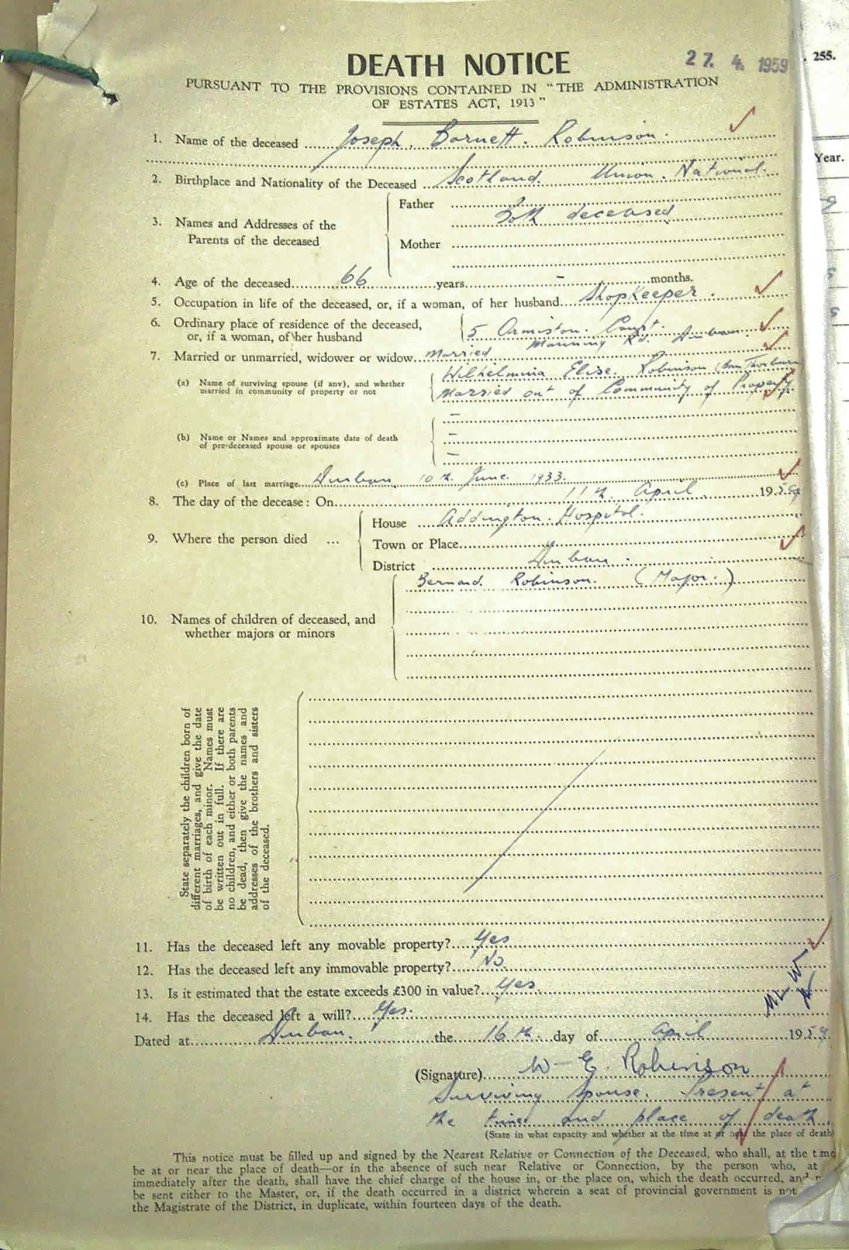 DEATH NOTICE
27. 4. 1959
255.
PURSUANT TO THE PROVISIONS CONTAINED IN "THE ADMINISTRATION
OF ESTATES ACT, 1913"
Year.
1. Name of the deceased Joseph Barnett Robinson.
2. Birthplace and Nationality of the Deceased Scotland. Union. National.
3. Names and Addresses of the Parents of the deceased
Father Both deceased
Mother
4. Age of the deceased 66 years - months.
5. Occupation in life of the deceased, or, if a woman, of her husband Shopkeeper.
6. Ordinary place of residence of the deceased, or, if a woman, of her husband
5 Ormiston Court.
Manning Rd. Durban.
7. Married or unmarried, widower or widow Married
(a) Name of surviving spouse (if any), and whether married in community of property or not
Wilhelmina Elise Robinson (born
Married out of Community of Property
(b) Name or Names and approximate date of death of pre-deceased spouse or spouses
-
-
-
(c) Place of last marriage Durban, 10th June. 1933.
8. The day of the decease: On 11th April 1959
9. Where the person died ...
House Addington Hospital.
Town or Place
District Durban.
10. Names of children of deceased, and whether majors or minors
Bernard Robinson. (Major.)
State separately the children born of
different marriages, and give the date
of birth of each minor. Names must
be written out in full. If there are
no children, and either or both parents
be dead, then give the names and
addresses of the brothers and sisters
of the deceased.
11. Has the deceased left any movable property? Yes
12. Has the deceased left any immovable property? No
13. Is it estimated that the estate exceeds £300 in value? Yes
14. Has the deceased left a will? Yes.
Dated at Durban. the 16th day of April 1959.
(Signature) W E. Robinson
Surviving Spouse. Present at
the time and place of death.
(State in what capacity and whether at the time at or near the place of death
This notice must be filled up and signed by the Nearest Relative or Connection of the Deceased, who shall, at the time
be at or near the place of death—or in the absence of such near Relative or Connection, by the person who, at
immediately after the death, shall have the chief charge of the house in, or the place on, which the death occurred, and
be sent either to the Master, or, if the death occurred in a district wherein a seat of provincial government is not
the Magistrate of the District, in duplicate, within fourteen days of the death.